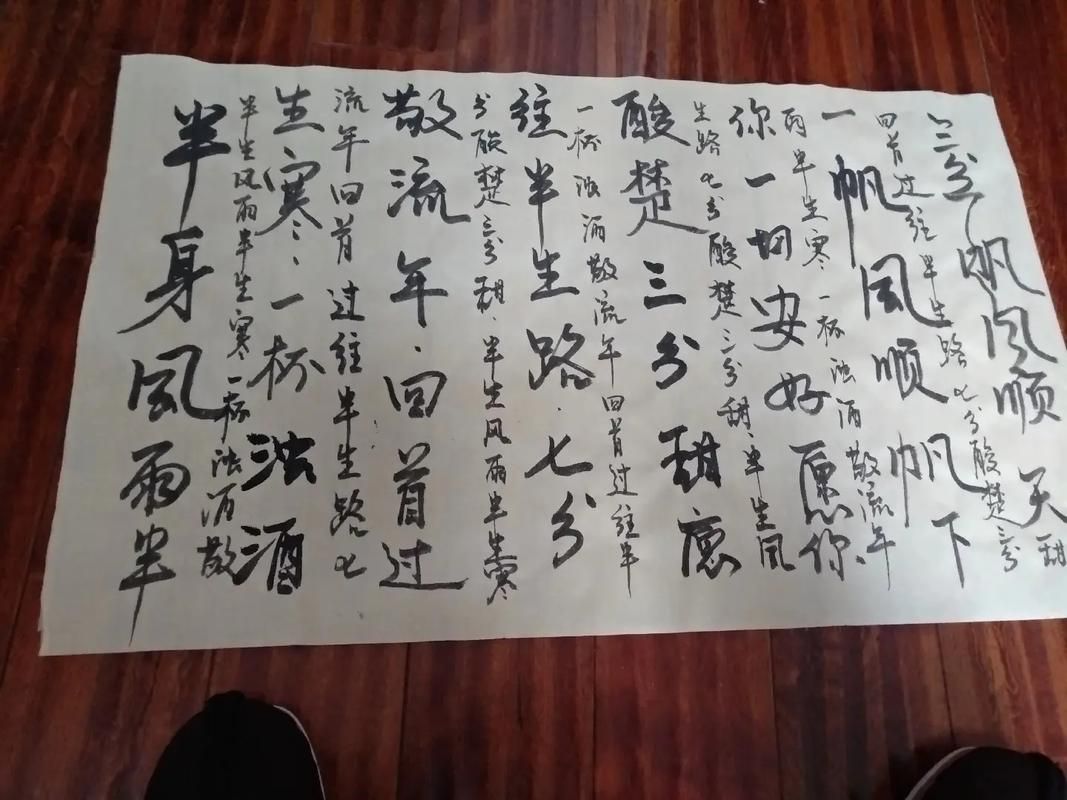 半身風雨半
半生风雨半生寒一杯浊酒敬
生寒、一杯浊酒
流年回首过往半生路七
敬流年.回首过
分酸楚三分甜、半生风雨半生寒
往半生路.七分
一杯浊酒敬流年回首过往半
酸楚三分甜愿
生路七分酸楚三分甜、半生风
你一切安好愿你
雨半生寒一杯浊酒敬流年
一帆风顺帆下
回首过往半生路七分酸楚三分
三分帆风顺天
甜